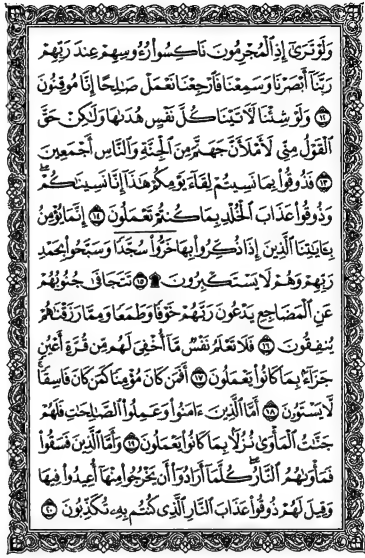 وَلَوْ تَرَىٰٓ إِذِ ٱلْمُجْرِمُونَ نَاكِسُوا۟ رُءُوسِهِمْ عِندَ رَبِّهِمْ
رَبَّنَآ أَبْصَرْنَا وَسَمِعْنَا فَٱرْجِعْنَا نَعْمَلْ صَـٰلِحًا إِنَّا مُوقِنُونَ
١٢ وَلَوْ شِئْنَا لَـَٔاتَيْنَا كُلَّ نَفْسٍ هُدَىٰهَا وَلَـٰكِنْ حَقَّ
ٱلْقَوْلُ مِنِّى لَأَمْلَأَنَّ جَهَنَّمَ مِنَ ٱلْجِنَّةِ وَٱلنَّاسِ أَجْمَعِينَ
١٣ فَذُوقُوا۟ بِمَا نَسِيتُمْ لِقَآءَ يَوْمِكُمْ هَـٰذَآ إِنَّا نَسِينَـٰكُمْ ۖ
وَذُوقُوا۟ عَذَابَ ٱلْخُلْدِ بِمَا كُنتُمْ تَعْمَلُونَ ١٤ إِنَّمَا يُؤْمِنُ
بِـَٔايَـٰتِنَا ٱلَّذِينَ إِذَا ذُكِّرُوا۟ بِهَا خَرُّوا۟ سُجَّدًا وَسَبَّحُوا۟ بِحَمْدِ
رَبِّهِمْ وَهُمْ لَا يَسْتَكْبِرُونَ ۩ ١٥ تَتَجَافَىٰ جُنُوبُهُمْ
عَنِ ٱلْمَضَاجِعِ يَدْعُونَ رَبَّهُمْ خَوْفًا وَطَمَعًا وَمِمَّا رَزَقْنَـٰهُمْ
يُنفِقُونَ ١٦ فَلَا تَعْلَمُ نَفْسٌ مَّآ أُخْفِىَ لَهُم مِّن قُرَّةِ أَعْيُنٍ
جَزَآءًۢ بِمَا كَانُوا۟ يَعْمَلُونَ ١٧ أَفَمَن كَانَ مُؤْمِنًا كَمَن كَانَ فَاسِقًا ۚ
لَّا يَسْتَوُۥنَ ١٨ أَمَّا ٱلَّذِينَ ءَامَنُوا۟ وَعَمِلُوا۟ ٱلصَّـٰلِحَـٰتِ فَلَهُمْ
جَنَّـٰتُ ٱلْمَأْوَىٰ نُزُلًۢا بِمَا كَانُوا۟ يَعْمَلُونَ ١٩ وَأَمَّا ٱلَّذِينَ فَسَقُوا۟
فَمَأْوَىٰهُمُ ٱلنَّارُ ۖ كُلَّمَآ أَرَادُوٓا۟ أَن يَخْرُجُوا۟ مِنْهَآ أُعِيدُوا۟ فِيهَا
وَقِيلَ لَهُمْ ذُوقُوا۟ عَذَابَ ٱلنَّارِ ٱلَّذِى كُنتُم بِهِۦ تُكَذِّبُونَ ٢٠